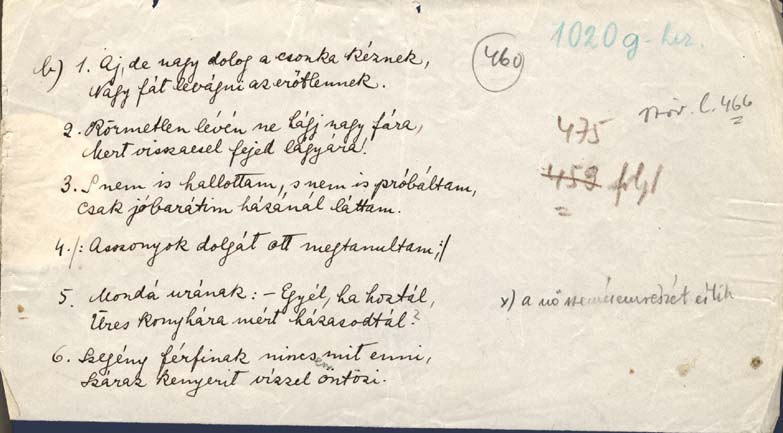 1020 g - hez.
460
b) 1. Aj, de nagy dolog a csonka kéznek,
Nagy fát levágni az erőtlennek.
szöv. l. 466
475
459 folyt
2. Körmetlen lévén ne hágj nagy fára,
Mert visszaesel fejed lágyára!
3. S nem is hallottam, s nem is próbáltam,
Csak jóbarátim házánál láttam.
4. /: Asszonyok dolgát ott megtanultam, :/
5. Mondá urának: - Egyél, ha hoztál,
Üres konyhára mért házasodtál?
x) a nő
6. Szegény férfinak nincsen mit enni,
Száraz kenyerit vízzel öntözi.